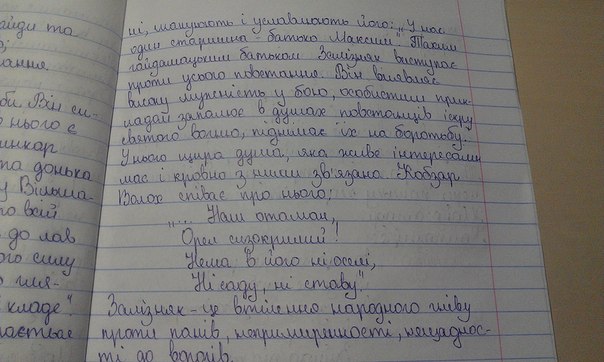 айди та
ання.
би Він си-
нього є
инкар
та донька
у Вільша-
го всій
до лав
ого силу
гля-
кладе".
ається
ні, шанують і уславлюють його: „У нас
один старшина - батько Максим". Таким
гайдамацьким батьком Залізняк виступає
проти усього повстання. Він виявляє
високу мужність у бою, особистим прик-
ладом запалює в душах повстанців іскру
святого вогню, піднімає їх на боротьбу.
У нього щира душа, яка живе інтересами
мас і кровно з ними зв'язана. Кобзар
Волох співає про нього:
„... Наш отаман,
Орел сизокрилий!
Нема в його ні оселі,
Ні саду, ні ставу".
Залізняк - це втілення народного гніву
проти панів, непримиренності, нещаднос-
ті до ворогів.